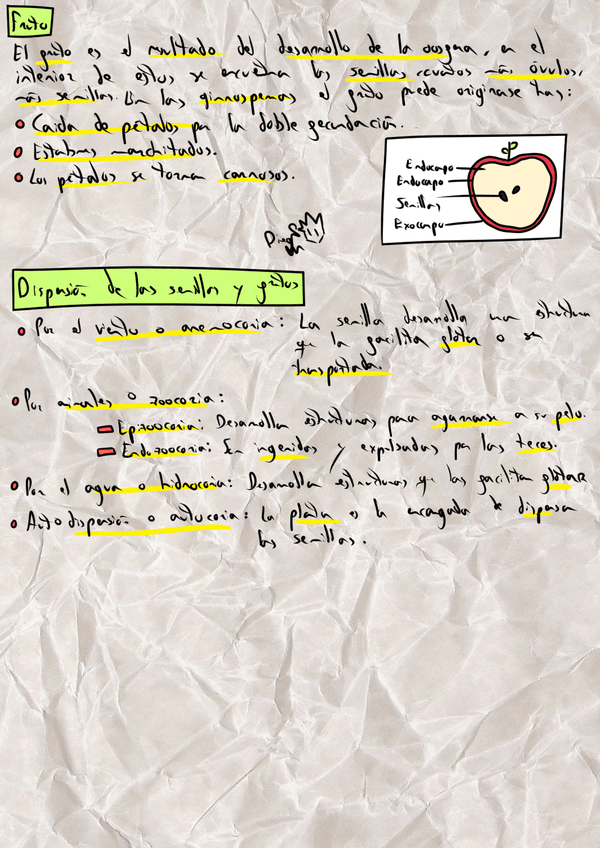 Fruto
El fruto es el resultado del desarrollo de la oosfera, en el
interior de estos se encuentra las semillas, cuantos más óvulos,
más semillas. En las gimnospermas el fruto puede originarse tras:
Caída de pétalos por la doble fecundación.
Estambres marchitados.
Los pétalos se tornan carnosos.
Endocarpo
Endocarpo
Semillas
Exocarpo
Dispersión de las semillas y frutos
Por el viento o anemocoria: La semilla desarrolla una estructura
que la facilita flotar o ser
transportada.
Por animales o zoocoria:
Epizoocoria: Desarrolla estructuras para agarrarse a su pelo.
Endozoocoria: Son ingeridas y expulsadas por las feces.
Por el agua o hidrocoria: Desarrollan estructuras que las facilita flotar
Auto dispersión o autocoria: La planta es la encargada de dispersar
las semillas.